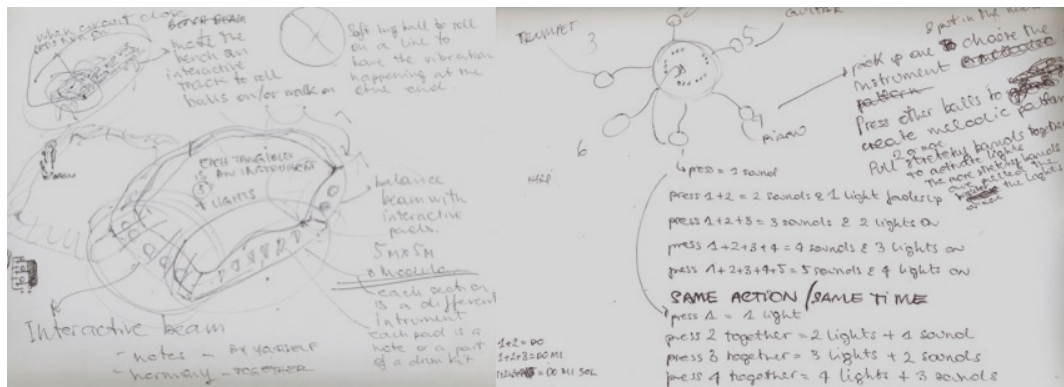 when circuit close
make the
bench an
interactive
track to roll
balls on/or walk on
Soft big ball to roll
on a line to
have the vibration
happening at the
end.
EACH TANGIBLE
IS
AN INSTRUMENT
+ LIGHTS
balance
beam with
interactive
pads.
5M x 5M
Modular
each section
is a different
intrument
each pad is a
note or a part
of a drum kit
Interactive beam
- notes - BY YOURSELF
- harmony - TOGETHER
TRUMPET
3
5
GUITAR
6
PIANO
HARP
spot in the
pick up one to choose the
instrument
Press other balls to
create melodic pattern
Pull 2 or more
stretchy bands together
to activate lights
The more stretchy bands
are pulled the
the lights
press = 1 sound
press 1+2 = 2 sounds & 1 light fades up
press 1+2+3 = 3 sounds & 2 lights on
press 1+2+3+4 = 4 sounds & 3 lights on
press 1+2+3+4+5 = 5 sounds & 4 lights on
SAME ACTION / SAME TIME
press 1 = 1 light
press 2 together = 2 lights + 1 sound
press 3 together = 3 lights + 2 sounds
press 4 together = 4 lights + 3 sounds
1+2 = DO
1+2+3 = DO MI
= DO MI SOL